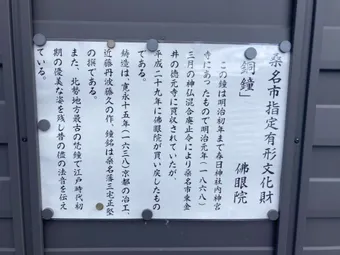 桑名市指定有形文化財
「銅鐘」
佛眼院
この鐘は明治初年まで春日神社内神宮
寺にあったもので明治元年（一八六八）
三月の神仏混合廃止令により桑名市東金
井の徳元寺に買収されていたが、
平成二十九年に佛眼院が買い戻したもの
である。
鋳造は、寛永十五年（一六三八）京都の冶工、
近藤丹波藤久の作、鐘銘は桑名藩三宅正堅
の撰である。
また、北勢地方最古の梵鐘で江戸時代初
期の優美な姿を残し昔の儘の法音を伝え
ている。